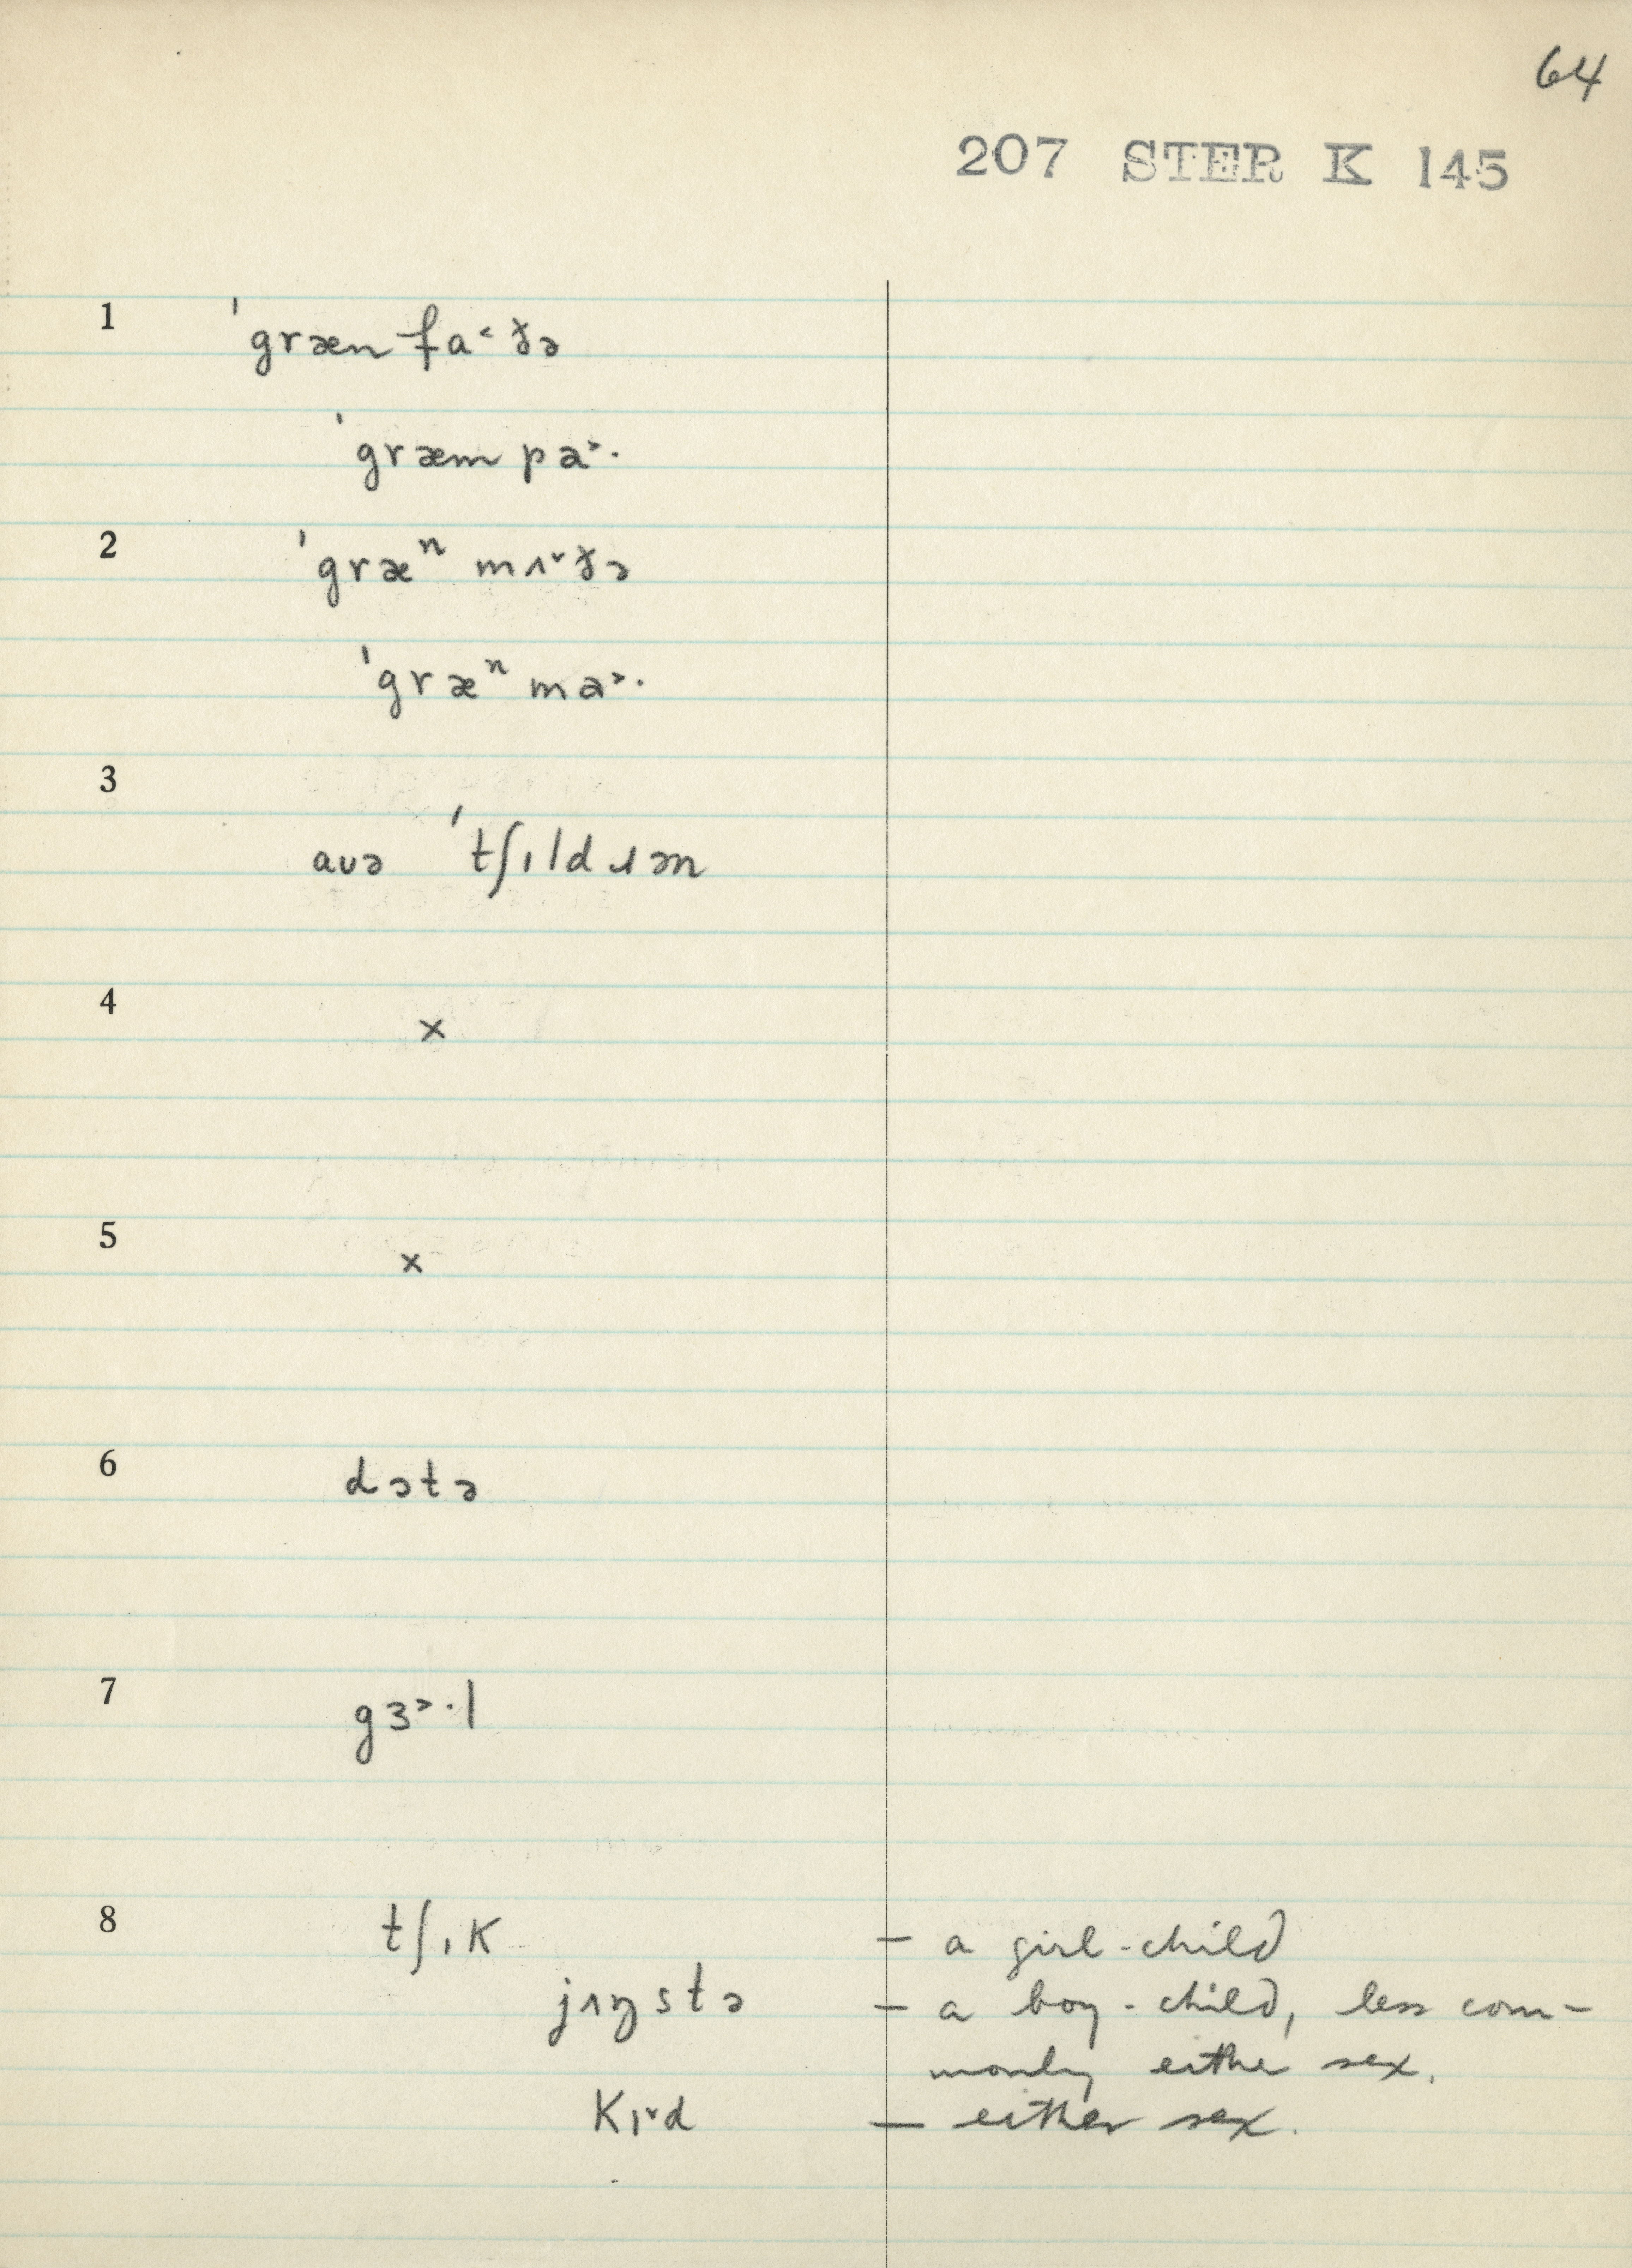 64
207 STER K 145
1 ˈgræn fa˂ðə
ˈgræm pa˃·
2 ˈgræⁿ mʌ˅ðə
ˈgræⁿ ma˃·
3
aʊə ˈtʃɪldɹən
4 ×
5 ×
6 dɔtə
7 gɜ˃·l
8 tʃɪk — a girl-child
jʌŋstə — a boy-child, less com-
monly either sex.
kɪ˅d — either sex.